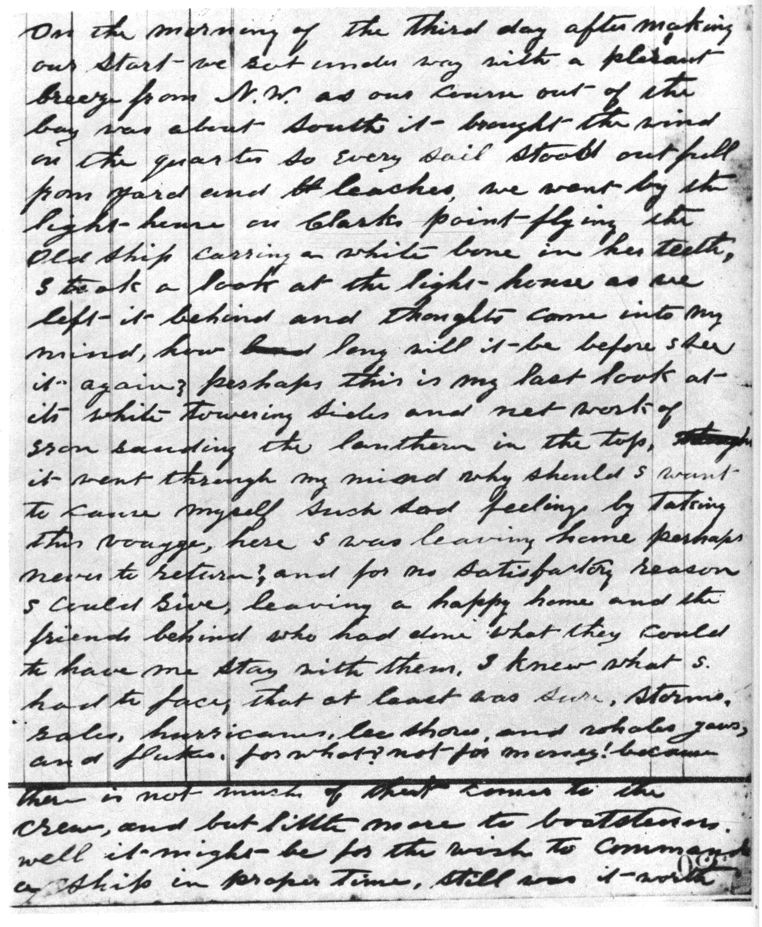 On the morning of the third day after making
our start we got under way with a plesant
breeze from N.W. as our course out of the
bay was about South it brought the wind
on the quarter so every sail stood out full
from yard and leaches, we went by the
light-house on Clarks point flying the
Old ship carring a white bone in her teeth,
I took a look at the light-house as we
left it behind and thoughts come into my
mind, how long will it be before I see
it again? perhaps this is my last look at
its white towering sides and net work of
iron the lanthern in the top,
it went through my mind why should I want
to cause myself such sad feelings by taking
this voyage, here I was leaving home perhaps
never to return?, and for no satisfactory reason
I could give, leaving a happy home and the
friends behind who had done what they could
to have me stay with them. I knew what I
had to face, that at least was sure, storms,
gales, hurricanes, lee shores, and whales jaws,
and flukes. for what? not for money! because
there is not much of that comes to the
crew, and but little more to boatsteerers.
well it might be for the wish to command
a ship in proper time, still was it worth